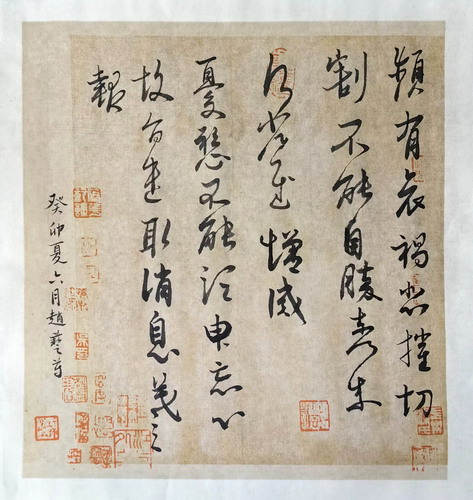 頻有哀禍悲摧切
割不能自勝奈何奈
何省慰增感
憂懸不能須臾忘心
故旨遣取消息羲之
報
癸卯夏六月趙藝